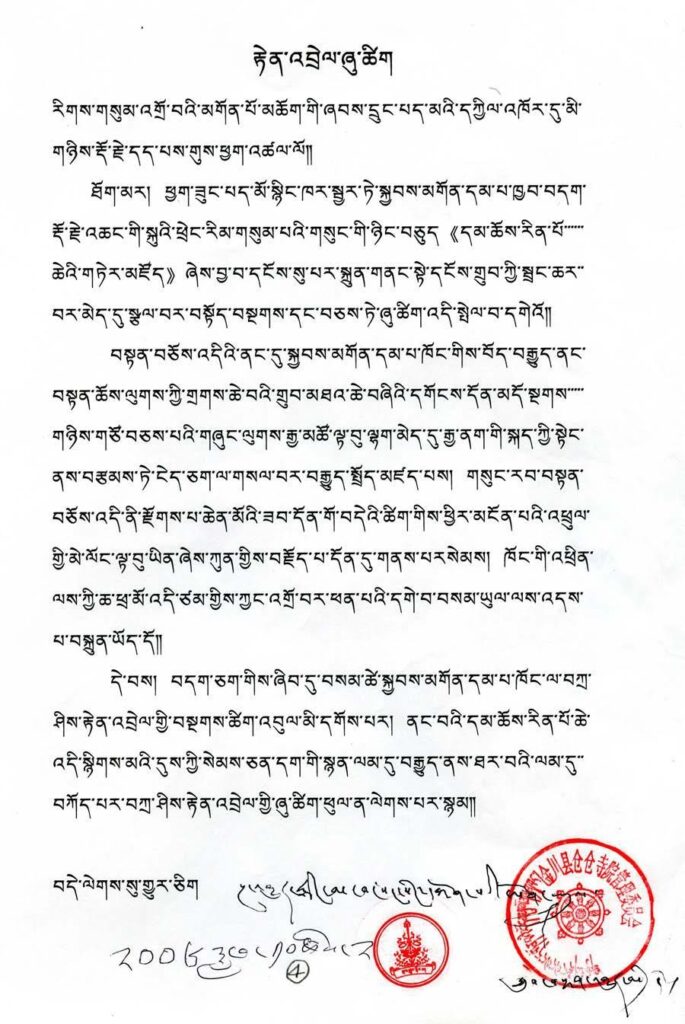 རྟེན་འབྲེལ་ཞུ་ཚིག
རིགས་གསུམ་འགྲོ་བའི་མགོན་པོ་མཆོག་གི་ཞབས་དྲུང་པད་མའི་དཀྱིལ་འཁོར་དུ་མི་
གཉིས་རྡོ་རྗེ་དད་པས་གུས་ཕྱག་འཚལ་ལོ།།
ཐོག་མར། ཕྱག་ཟུང་པད་མོ་སྙིང་ཁར་སྦྱར་ཏེ་སྐྱབས་མགོན་དམ་པ་ཁྱབ་བདག་
རྡོ་རྗེ་འཆང་གི་སྐུའི་ཕྲེང་རིམ་གསུམ་པའི་གསུང་གི་ཉིང་བཅུད《དམ་ཆོས་རིན་པོ་
ཆེའི་གཏེར་མཛོད》ཞེས་བྱ་བ་དངོས་སུ་པར་སྐྲུན་གནང་སྟེ་དངོས་གྲུབ་ཀྱི་སྦྲང་ཆར་
བར་མེད་དུ་སྩལ་བར་བསྟོད་བསྔགས་དང་བཅས་ཏེ་ཞུ་ཚིག་འདི་སྤེལ་བ་དགེའོ།།
བསྟན་བཅོས་འདིའི་ནང་དུ་སྐྱབས་མགོན་དམ་པ་ཁོང་གིས་བོད་བརྒྱུད་ནང་
བསྟན་ཆོས་ལུགས་ཀྱི་གྲགས་ཆེ་བའི་གྲུབ་མཐའ་ཆེ་བཞིའི་དགོངས་དོན་མདོ་སྔགས་
གཉིས་གཙོ་བཅས་པའི་གཞུང་ལུགས་རྒྱ་མཚོ་ལྟ་བུ་ལྷག་མེད་དུ་རྒྱ་ནག་གི་སྐད་ཀྱི་སྟེང་
ནས་བརྩམས་ཏེ་ངེད་ཅག་ལ་གསལ་བར་བརྒྱུད་སྤྲོད་མཛད་པས། གསུང་རབ་བསྟན་
བཅོས་འདི་ནི་རྫོགས་པ་ཆེན་མོའི་ཟབ་དོན་གོ་བདེའི་ཚིག་གིས་ཕྱིར་མངོན་པའི་འཕྲུལ་
གྱི་མེ་ལོང་ལྟ་བུ་ཡིན་ཞེས་ཀུན་གྱིས་བརྗོད་པ་དོན་དུ་གནས་པར་སེམས། ཁོང་གི་འཕྲིན་
ལས་ཀྱི་ཆ་ཕྲ་མོ་འདི་ཙམ་གྱིས་ཀྱང་འགྲོ་བར་ཕན་པའི་དགེ་བ་བསམ་ཡུལ་ལས་འདས་
པ་བསྐྲུན་ཡོད་དོ།།
དེ་བས། བདག་ཅག་གིས་ཞིབ་ཏུ་བསམ་ཚེ་སྐྱབས་མགོན་དམ་པ་ཁོང་ལ་བཀྲ་
ཤིས་རྟེན་འབྲེལ་གྱི་བསྔགས་ཚིག་འབུལ་མི་དགོས་པར། ནང་བའི་དམ་ཆོས་རིན་པོ་ཆེ་
འདི་སྙིགས་མའི་དུས་ཀྱི་སེམས་ཅན་དག་གི་སྙན་ལམ་དུ་བརྒྱུད་ནས་ཐར་བའི་ལམ་དུ་
བཀོད་པར་བཀྲ་ཤིས་རྟེན་འབྲེལ་གྱི་ཞུ་ཚིག་ཕུལ་ན་ལེགས་པར་སྙམ།།
བདེ་ལེགས་སུ་གྱུར་ཅིག
金川县仓仓寺院管理委员会